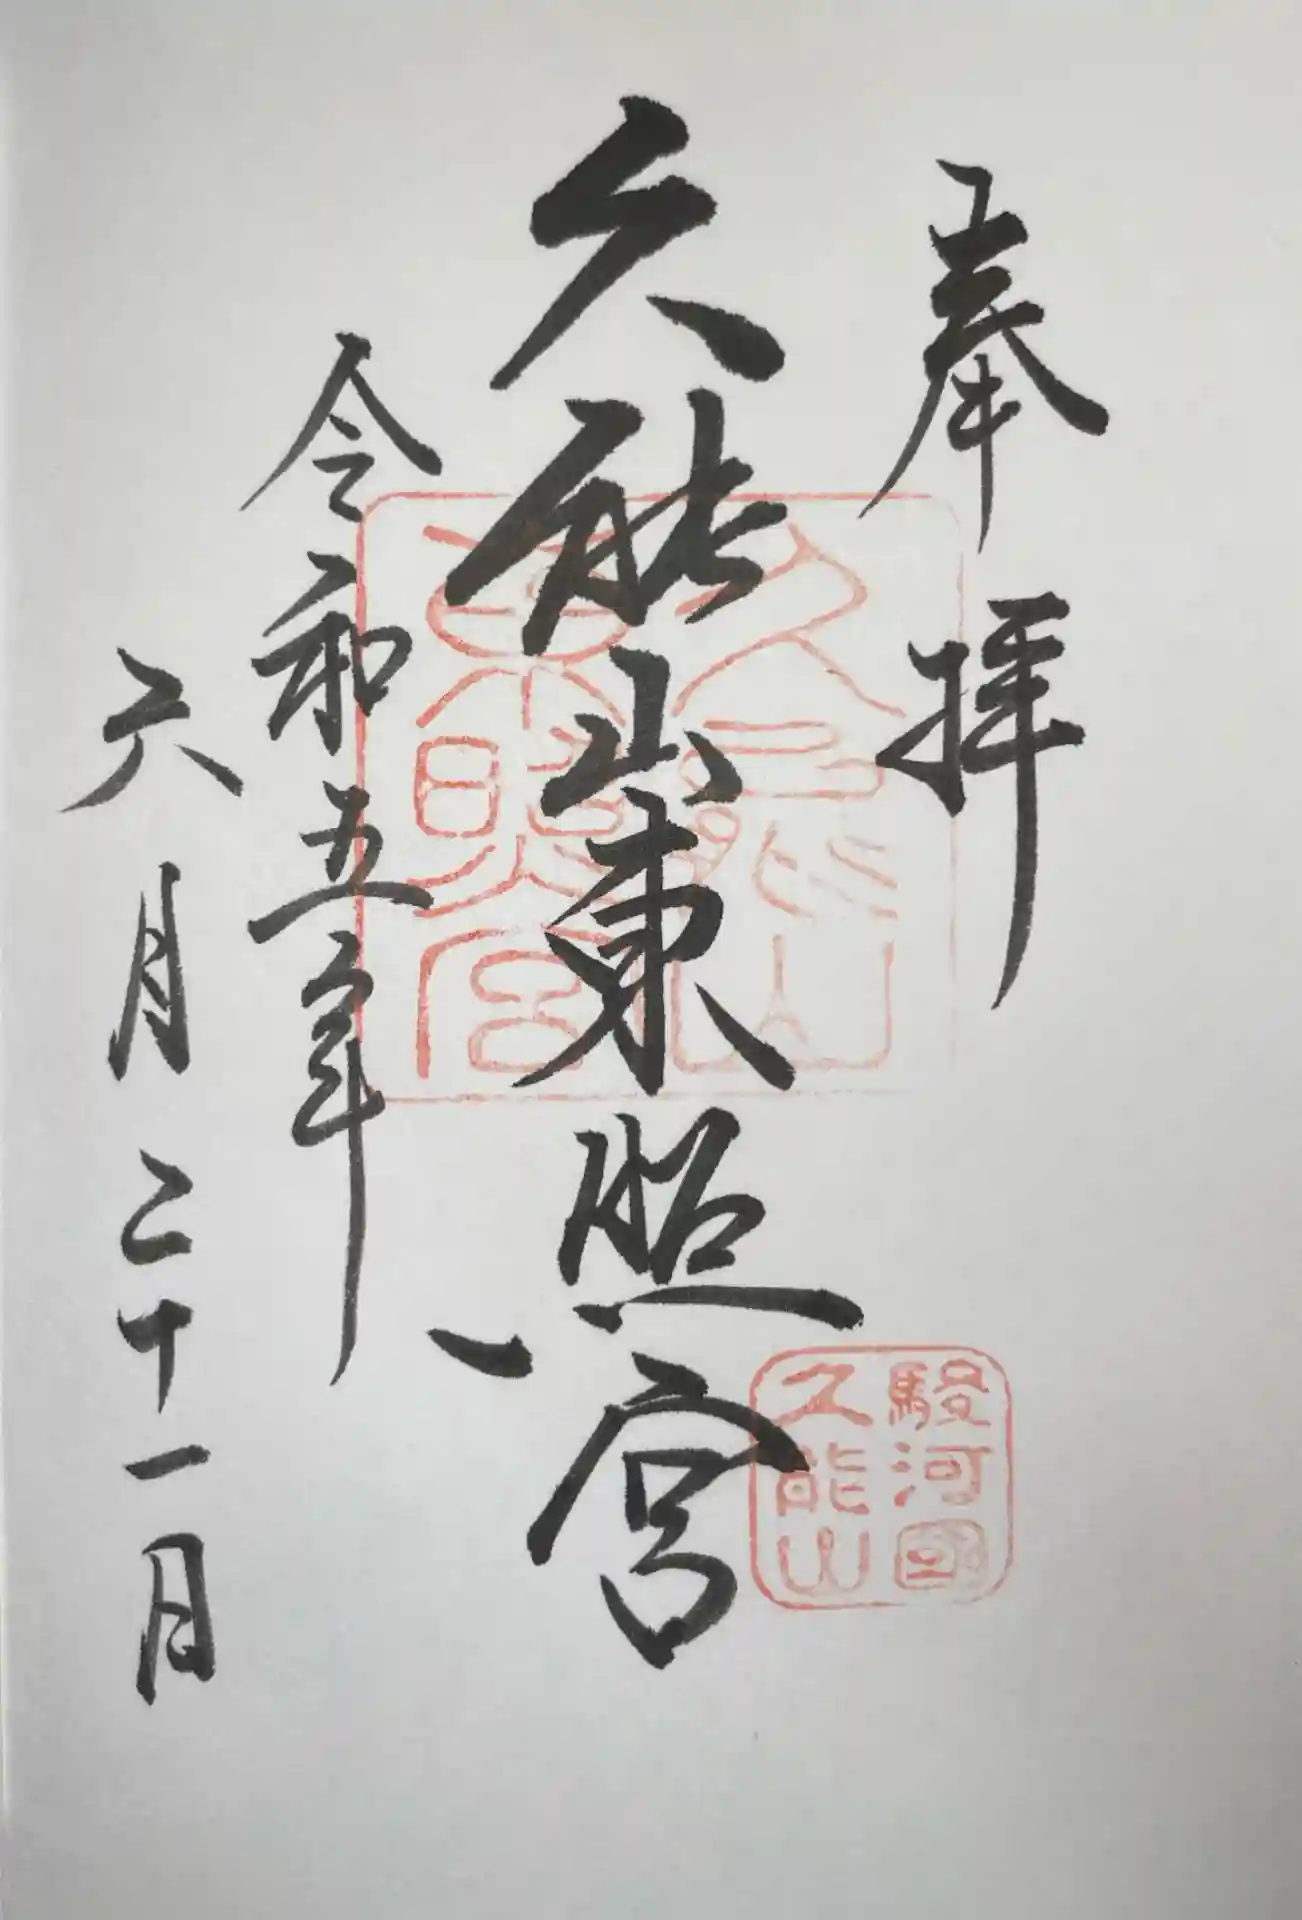 奉拝
久能山東照宮
令和五年
六月二十一日
久能山
東照宮
駿河國
久能山